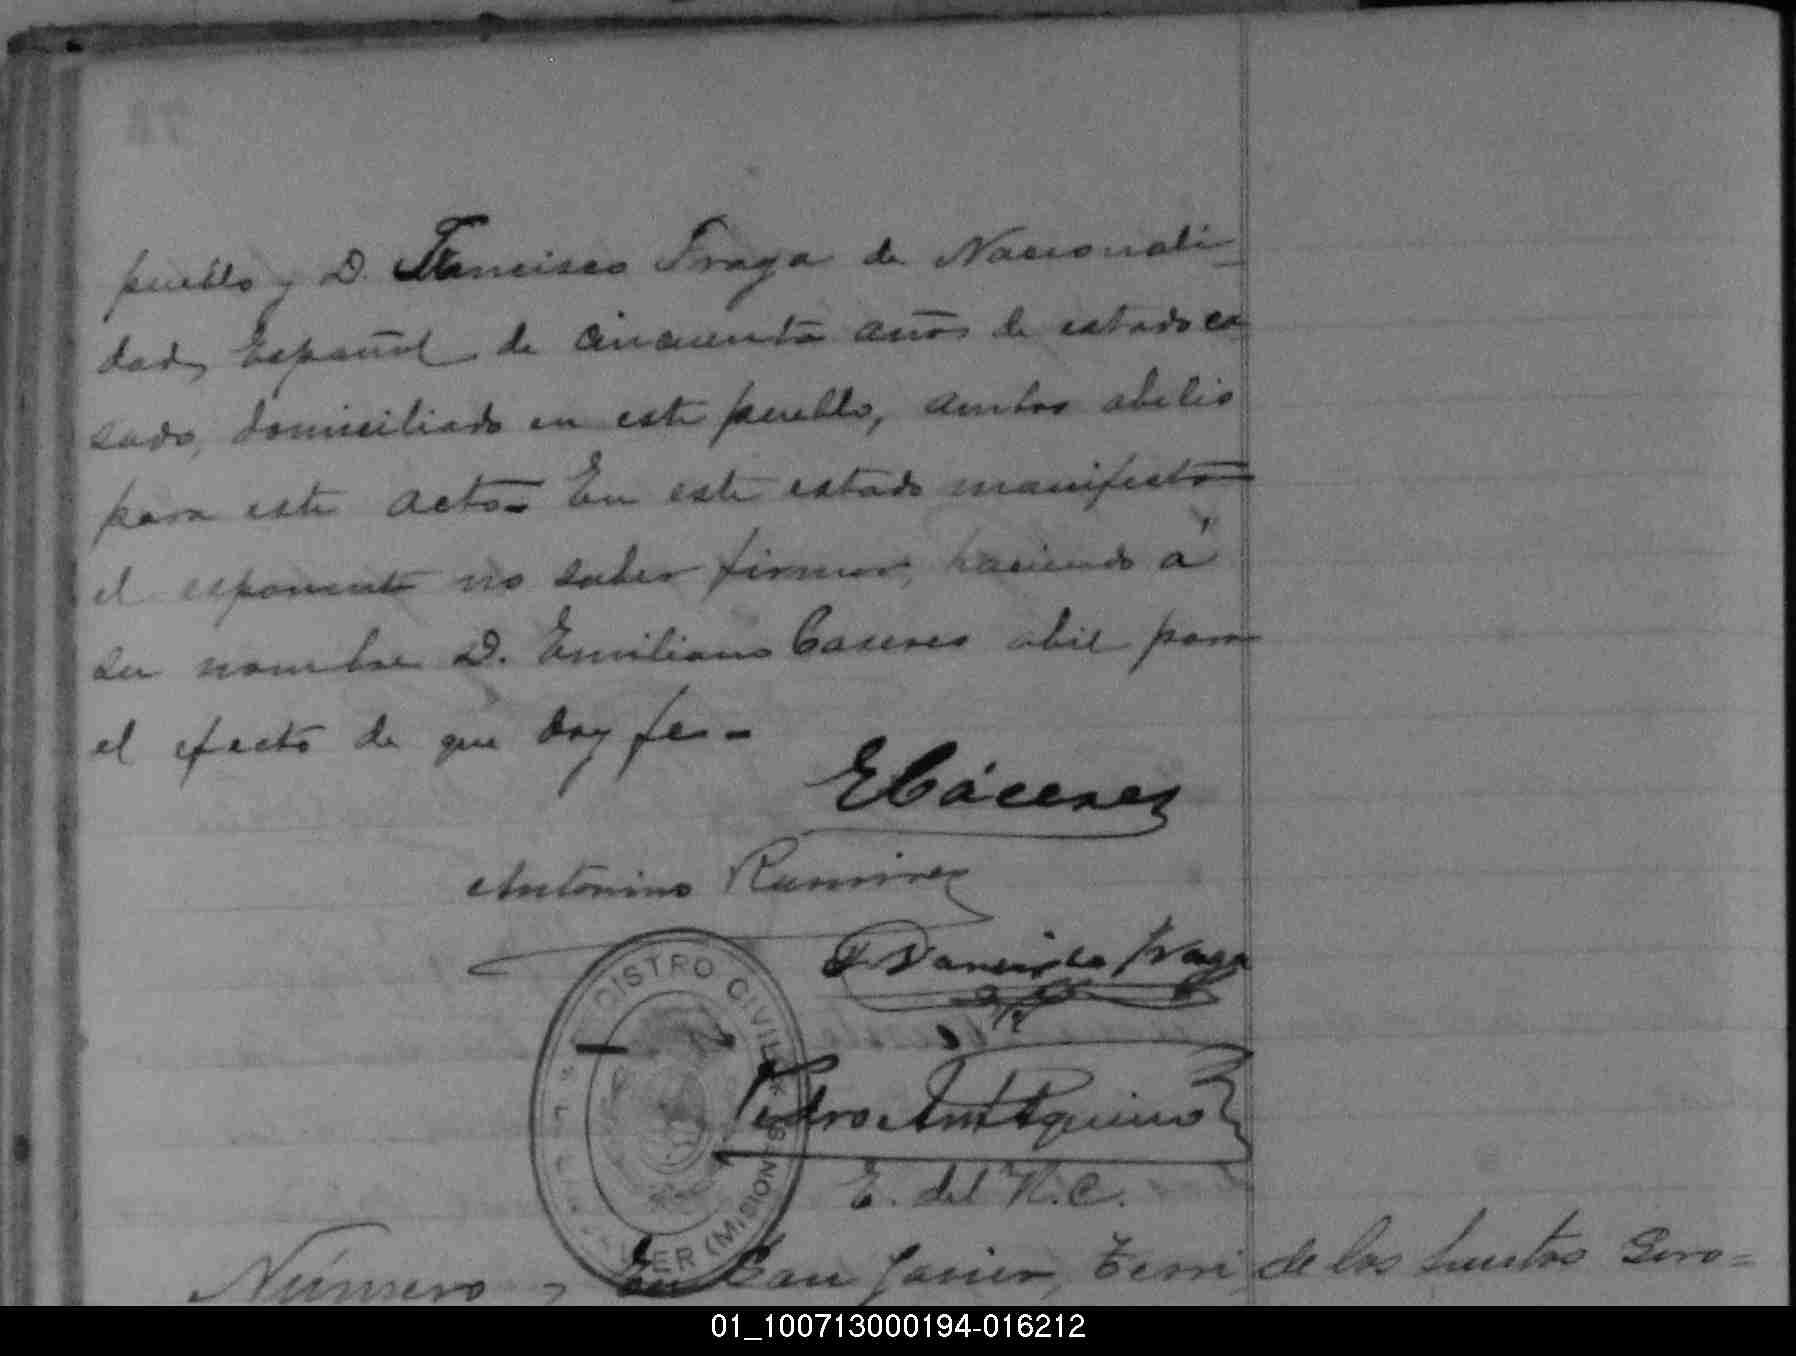 pueblo y D. Francisco Fraga de Nacionali-
dad, Español de cincuenta años de estado ca
sado, domiciliado en este pueblo, ambos abelis
para este acto. En este estado manifesto
el esponente no saber firmar, haciendo á
su nombre D. Emiliano Caseres abil para
el efecto de que doy fe.-
ECáceres
Antonino Ramirez
Francisco Fraga
Pedro Ant Aquino
E. del R.C.
REGISTRO CIVIL
JAVIER (MISIONES)
Número En San Javier, Terri de los
01_100713000194-016212